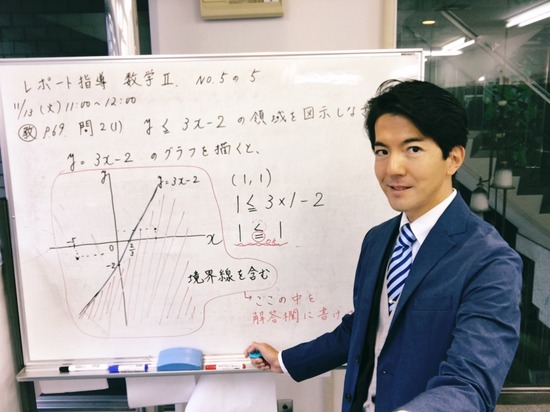 レポート指導 数学Ⅱ. NO.5の5
11/13 (火) 11:00~12:00
教 P69 問2(1) y≦3x-2 の領域を図示しな
y=3x-2 のグラフを描くと、
y
y=3x-2
0
2/3
x
-2
(1, 1)
1≦3×1-2
1≦1
境界線を含む
ここの中を
解答欄に書け